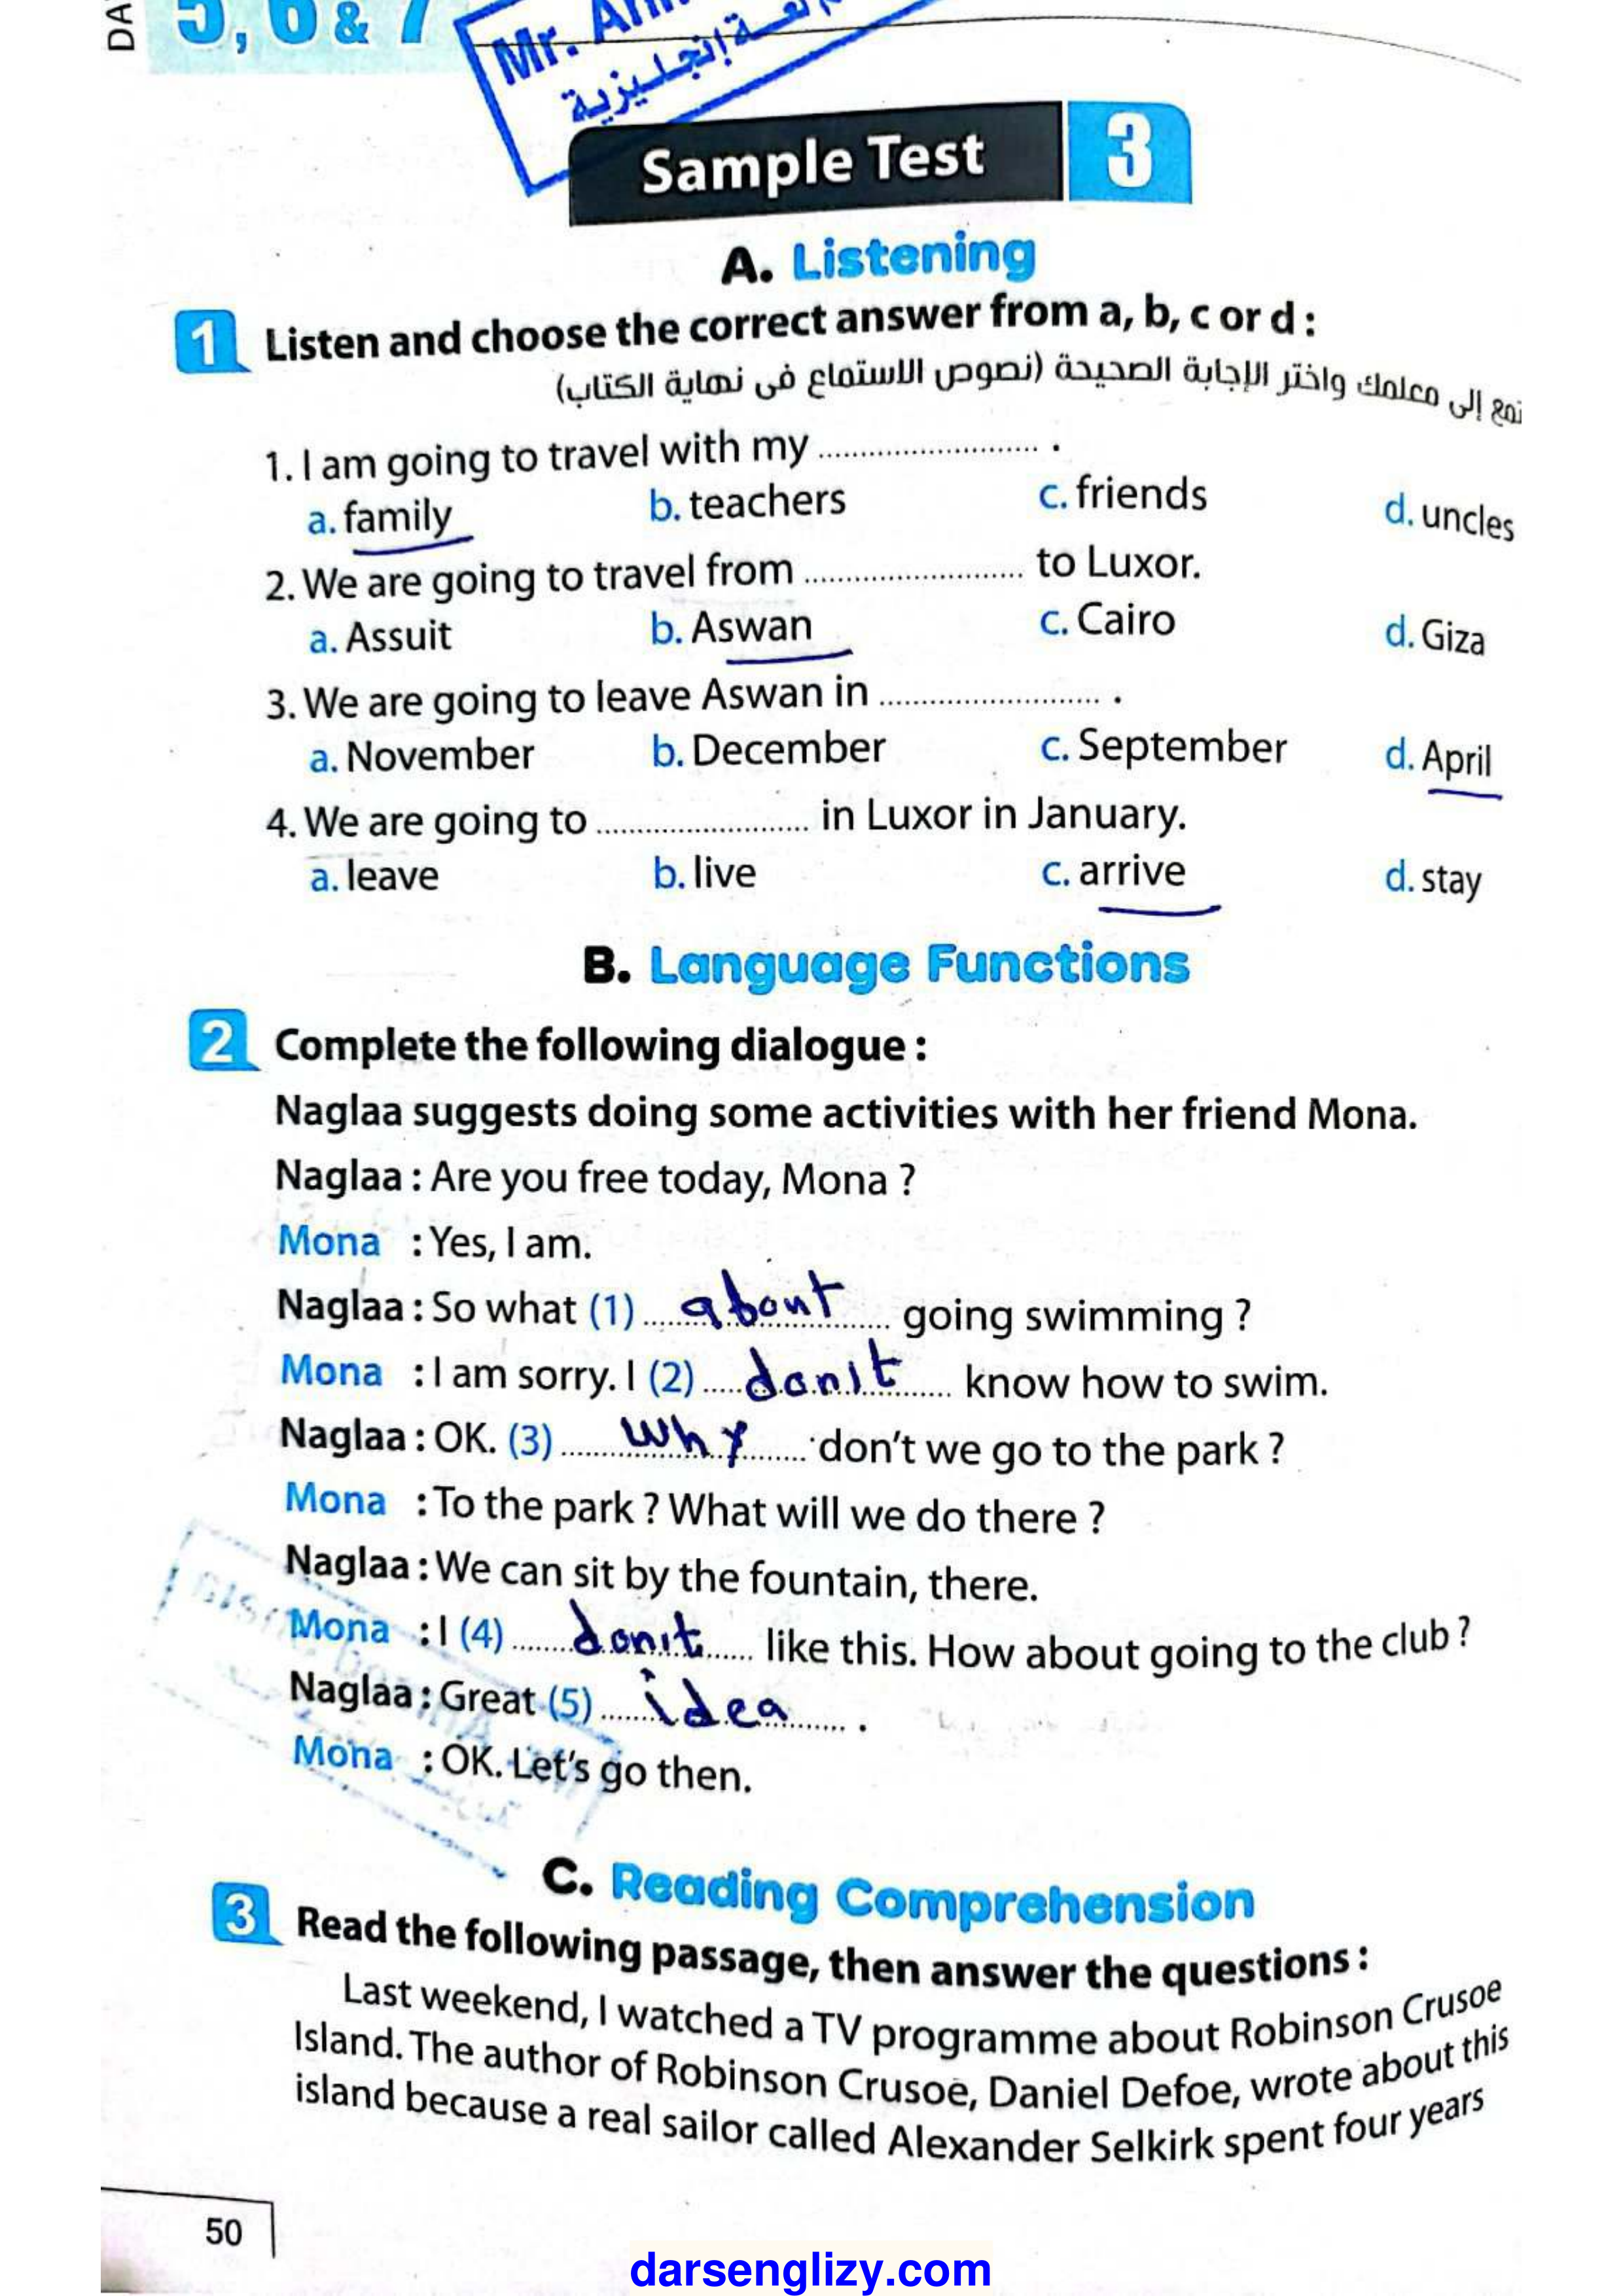 5, 6 & 7
Mr.
إنجليزية
Sample Test 3
A. Listening
1 Listen and choose the correct answer from a, b, c or d :
إلى معلمك واختر الإجابة الصحيحة (نصوص الاستماع فى نهاية الكتاب)
1. I am going to travel with my ........................... .
a. family b. teachers c. friends d. uncles
2. We are going to travel from ........................... to Luxor.
a. Assuit b. Aswan c. Cairo d. Giza
3. We are going to leave Aswan in ........................... .
a. November b. December c. September d. April
4. We are going to .......................... in Luxor in January.
a. leave b. live c. arrive d. stay
B. Language Functions
2 Complete the following dialogue :
Naglaa suggests doing some activities with her friend Mona.
Naglaa : Are you free today, Mona ?
Mona : Yes, I am.
Naglaa : So what (1) about going swimming ?
Mona : I am sorry. I (2) don't know how to swim.
Naglaa : OK. (3) why don't we go to the park ?
Mona : To the park ? What will we do there ?
Naglaa : We can sit by the fountain, there.
Mona : I (4) don't like this. How about going to the club ?
Naglaa : Great (5) idea .
Mona : OK. Let's go then.
C. Reading Comprehension
3 Read the following passage, then answer the questions :
Last weekend, I watched a TV programme about Robinson Crusoe
Island. The author of Robinson Crusoe, Daniel Defoe, wrote about this
island because a real sailor called Alexander Selkirk spent four years
50
darsenglizy.com